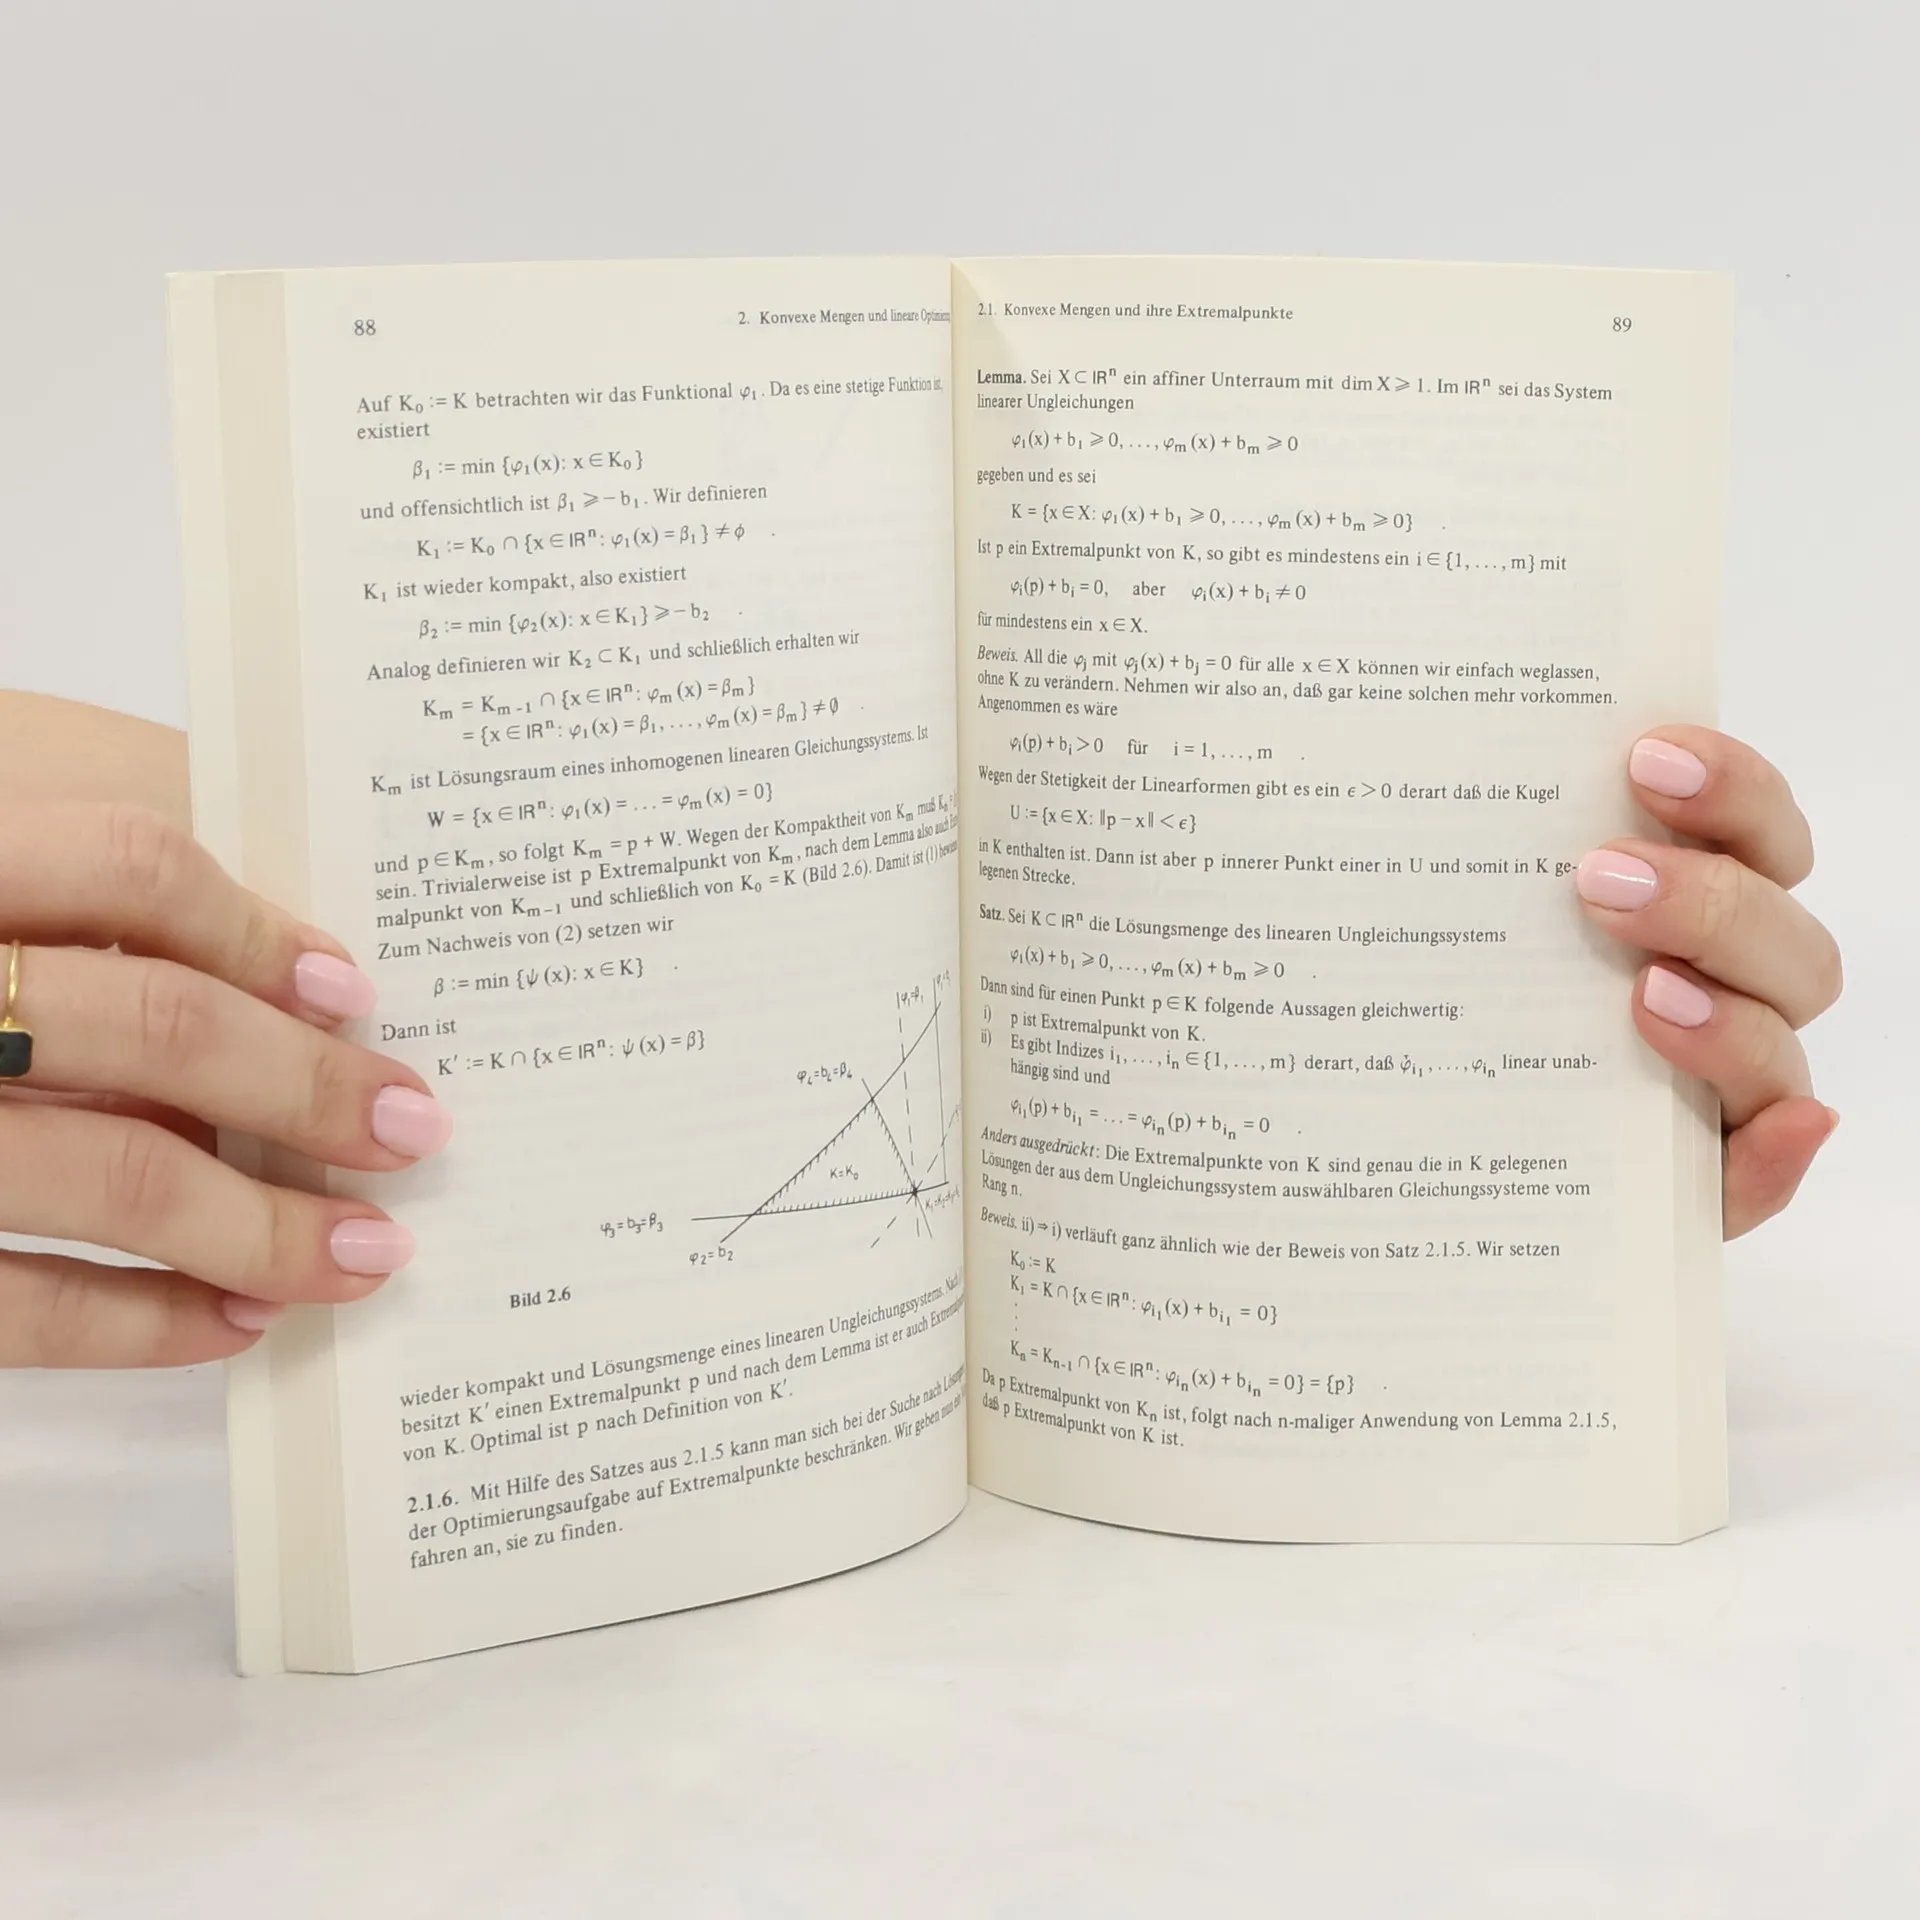 88
2. Konvexe Mengen und lineare
Auf K₀ := K betrachten wir das Funktional φ₁. Da es eine stetige Funktion ist,
existiert
β₁ := min {φ₁(x): x ∈ K₀}
und offensichtlich ist β₁ ⩾ −b₁. Wir definieren
K₁ := K₀ ∩ {x ∈ ℝⁿ: φ₁(x) = β₁} ≠ ϕ .
K₁ ist wieder kompakt, also existiert
β₂ := min {φ₂(x): x ∈ K₁} ⩾ −b₂ .
Analog definieren wir K₂ ⊂ K₁ und schließlich erhalten wir
Kₘ = Kₘ₋₁ ∩ {x ∈ ℝⁿ: φₘ(x) = βₘ}
= {x ∈ ℝⁿ: φ₁(x) = β₁, ..., φₘ(x) = βₘ} ≠ ∅ .
Kₘ ist Lösungsraum eines inhomogenen linearen Gleichungssystems. Ist
W = {x ∈ ℝⁿ: φ₁(x) = ... = φₘ(x) = 0}
und p ∈ Kₘ, so folgt Kₘ = p + W. Wegen der Kompaktheit von Kₘ muß Kₘ =
sein. Trivialerweise ist p Extremalpunkt von Kₘ, nach dem Lemma also auch
malpunkt von Kₘ₋₁ und schließlich von K₀ = K (Bild 2.6). Damit ist (1)
Zum Nachweis von (2) setzen wir
β := min {ψ(x): x ∈ K} .
Dann ist
K′ := K ∩ {x ∈ ℝⁿ: ψ(x) = β}
φ₁=β₁
φ₄=b₄=β₄
K=K₀
φ₃=b₃=β₃
φ₂=b₂
Bild 2.6
wieder kompakt und Lösungsmenge eines linearen Ungleichungssystems. Nach
besitzt K′ einen Extremalpunkt p und nach dem Lemma ist er auch
von K. Optimal ist p nach Definition von K′.
2.1.6. Mit Hilfe des Satzes aus 2.1.5 kann man sich bei der Suche nach
der Optimierungsaufgabe auf Extremalpunkte beschränken. Wir geben nun ein
fahren an, sie zu finden.
2.1. Konvexe Mengen und ihre Extremalpunkte
89
Lemma. Sei X ⊂ ℝⁿ ein affiner Unterraum mit dim X ⩾ 1. Im ℝⁿ sei das System
linearer Ungleichungen
φ₁(x) + b₁ ⩾ 0, ..., φₘ(x) + bₘ ⩾ 0
gegeben und es sei
K = {x ∈ X: φ₁(x) + b₁ ⩾ 0, ..., φₘ(x) + bₘ ⩾ 0} .
Ist p ein Extremalpunkt von K, so gibt es mindestens ein i ∈ {1, ..., m} mit
φᵢ(p) + bᵢ = 0, aber φᵢ(x) + bᵢ ≠ 0
für mindestens ein x ∈ X.
Beweis. All die φⱼ mit φⱼ(x) + bⱼ = 0 für alle x ∈ X können wir einfach weglassen,
ohne K zu verändern. Nehmen wir also an, daß gar keine solchen mehr vorkommen.
Angenommen es wäre
φᵢ(p) + bᵢ > 0 für i = 1, ..., m .
Wegen der Stetigkeit der Linearformen gibt es ein ϵ > 0 derart daß die Kugel
U := {x ∈ X: ‖p − x‖ < ϵ}
in K enthalten ist. Dann ist aber p innerer Punkt einer in U und somit in K ge-
legenen Strecke.
Satz. Sei K ⊂ ℝⁿ die Lösungsmenge des linearen Ungleichungssystems
φ₁(x) + b₁ ⩾ 0, ..., φₘ(x) + bₘ ⩾ 0 .
Dann sind für einen Punkt p ∈ K folgende Aussagen gleichwertig:
i) p ist Extremalpunkt von K.
ii) Es gibt Indizes i₁, ..., iₙ ∈ {1, ..., m} derart, daß φᵢ₁, ..., φᵢₙ linear unab-
hängig sind und
φᵢ₁(p) + bᵢ₁ = ... = φᵢₙ(p) + bᵢₙ = 0 .
Anders ausgedrückt: Die Extremalpunkte von K sind genau die in K gelegenen
Lösungen der aus dem Ungleichungssystem auswählbaren Gleichungssysteme vom
Rang n.
Beweis. ii) ⇒ i) verläuft ganz ähnlich wie der Beweis von Satz 2.1.5. Wir setzen
K₀ := K
K₁ = K ∩ {x ∈ ℝⁿ: φᵢ₁(x) + bᵢ₁ = 0}
⋮
Kₙ = Kₙ₋₁ ∩ {x ∈ ℝⁿ: φᵢₙ(x) + bᵢₙ = 0} = {p} .
Da p Extremalpunkt von Kₙ ist, folgt nach n-maliger Anwendung von Lemma 2.1.5,
daß p Extremalpunkt von K ist.